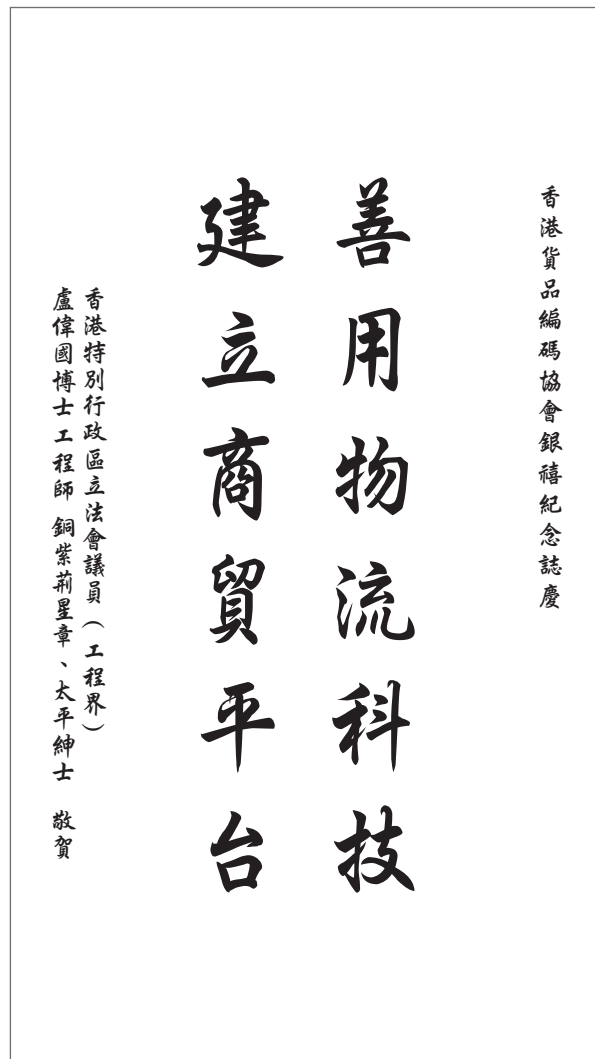 香港貨品編碼協會銀禧紀念誌慶
善用物流科技
建立商貿平台
香港特別行政區立法會議員（工程界）
盧偉國博士工程師 銅紫荊星章、太平紳士 敬賀